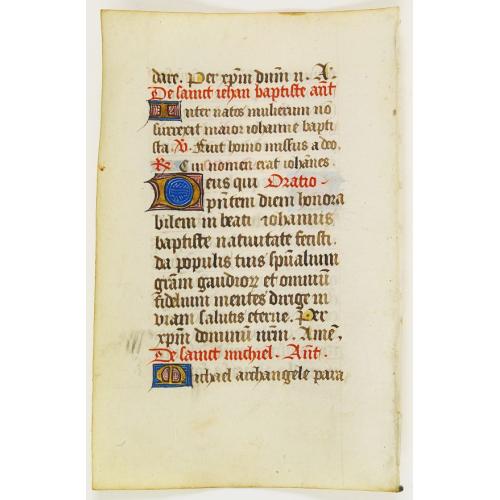 dare. Per xpm dnm n. A.
De sainct iehan baptiste ant
Inter natos mulierum no
surrexit maior iohanne bapti
sta. V. Fuit homo missus a deo.
R. Cui nomen erat iohanes.
Deus qui Oratio.
pntem diem honora
bilem in beati iohannis
baptiste natiuitate fecisti.
da populis tuis spualium
gram gaudiorz et omniu
fidelium mentes dirige in
viam salutis eterne. Per
xpm dominu nrm. Ame.
De sainct michiel. Ant.
Michael archangele para